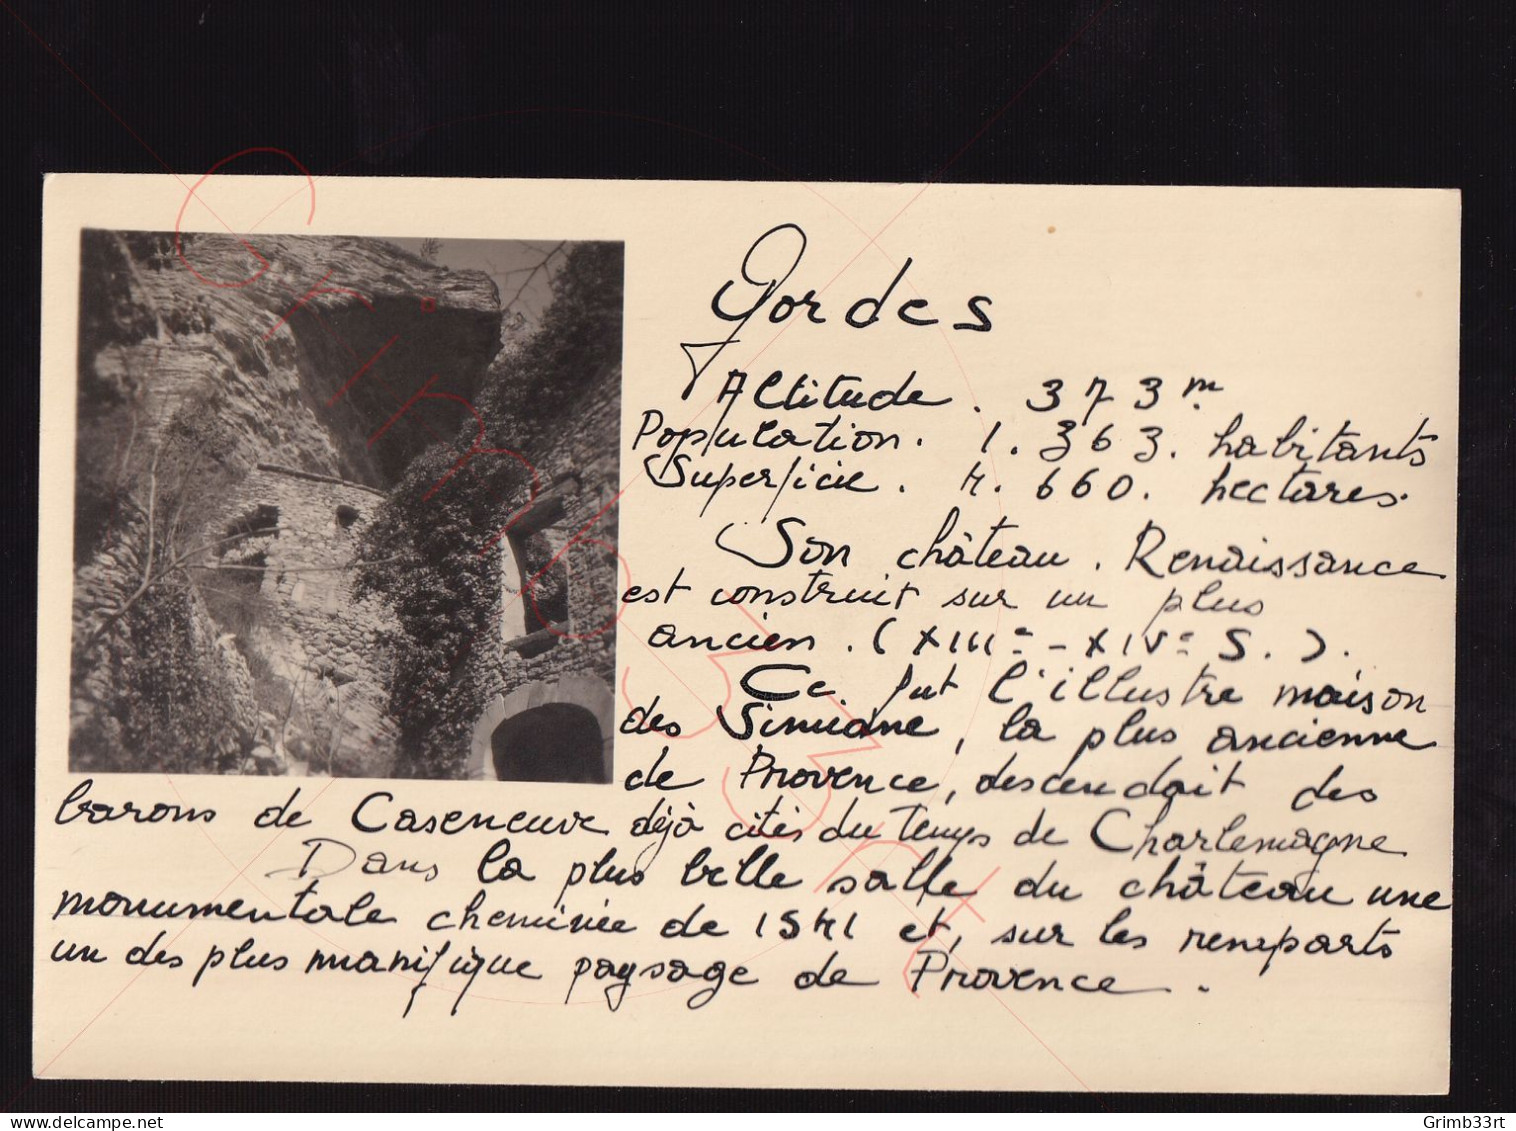 Gordes
Altitude. 373 m
Population. 1.363. habitants
Superficie. 4.660. hectares.
Son château. Renaissance
est construit sur un plus
ancien. (XIIIe - XIVe S.).
Ce fut l'illustre maison
des Simiane, la plus ancienne
de Provence, descendait des
barons de Caseneuve déjà cités du temps de Charlemagne
Dans la plus belle salle du château une
monumentale cheminée de 1541 et, sur les remparts
un des plus manifique paysage de Provence.
Grimb33rt
Grimb33rt